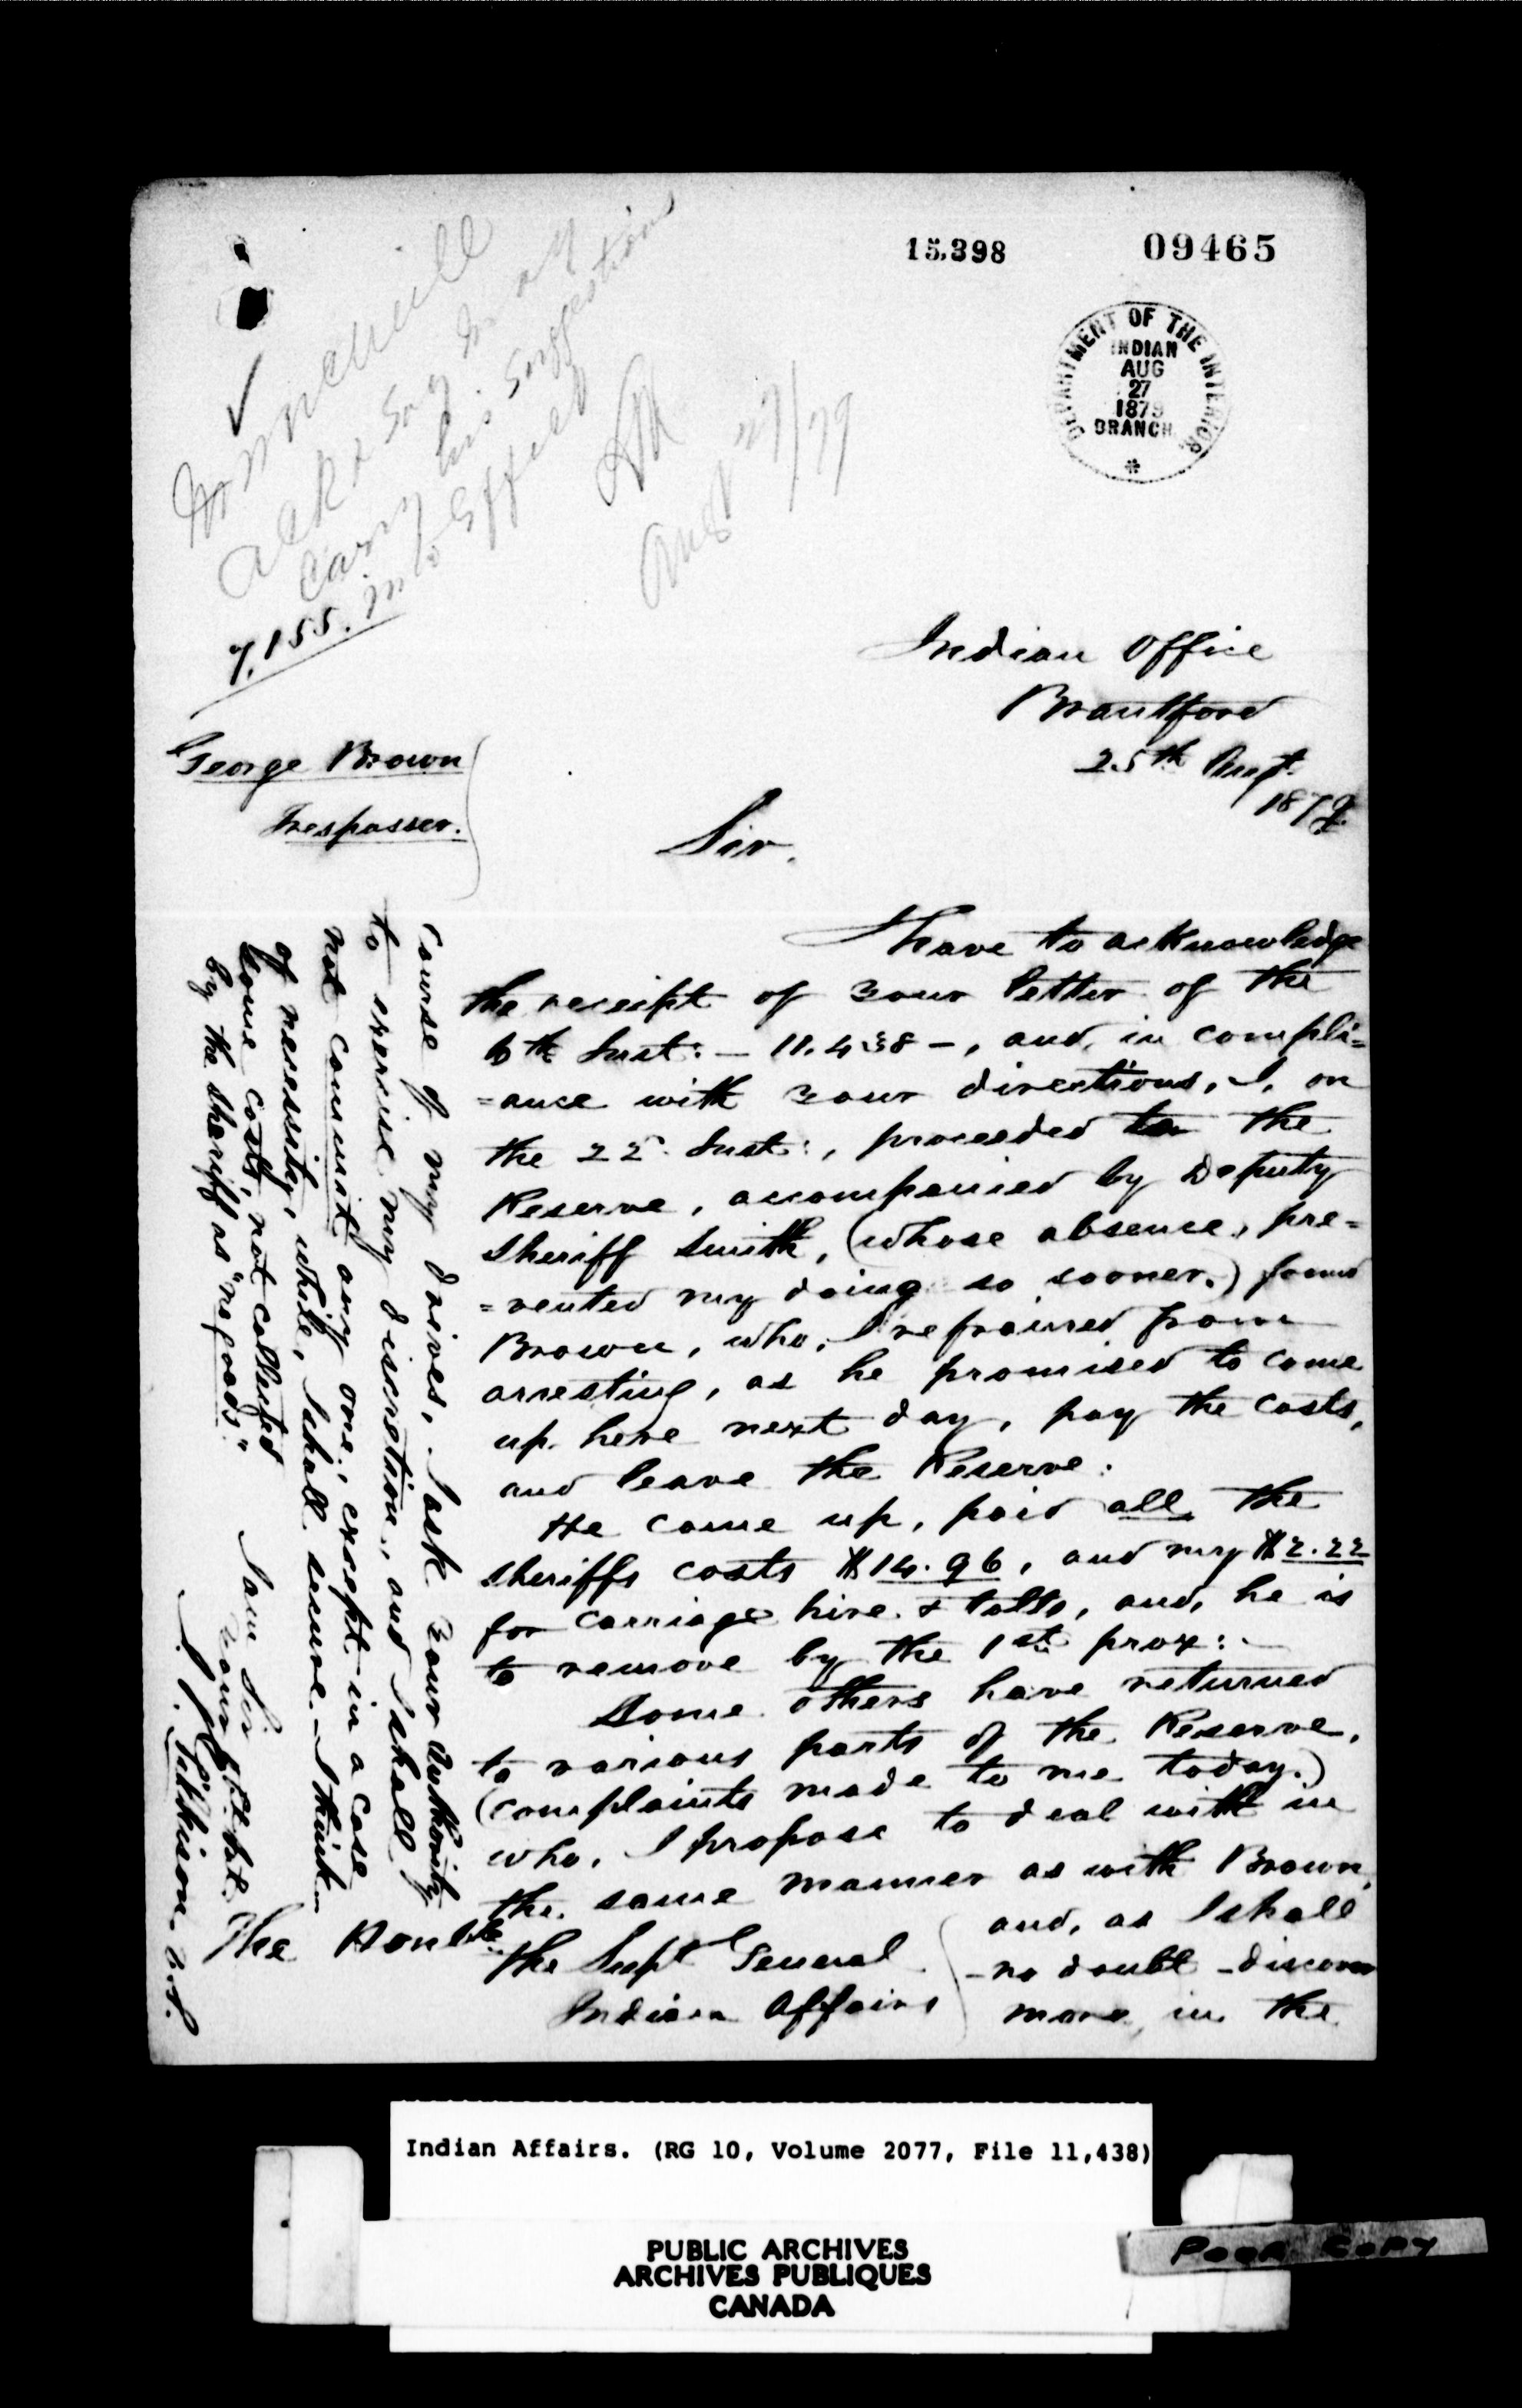 15.398
09465
DEPARTMENT OF THE INTERIOR
INDIAN
AUG
27
1879
BRANCH
Ack & say may
carry his suggestions
into effect
Aug 27/79
7.155.
George Brown
Trespasser.
Indian Office
Brantford
25th Augt.
1879
Sir,
I have to acknowledge
the receipt of your letter of the
6th Inst: – 11.438 –, and, in compli=
=ance with your directions, I, on
the 22d Inst:, proceeded to the
Reserve, accompanied by Deputy
Sheriff Smith, (whose absence, pre=
=vented my doing so sooner.) found
Brown, who, I refrained from
arresting, as he promised to come
up here next day, pay the costs,
and leave the Reserve.
He came up, paid all the
sheriffs costs $14.96, and my $2.22
for carriage hire & tolls, and, he is
to remove by the 1st prox: –
Some others have returned
to various parts of the Reserve,
(complaints made to me today.)
who, I propose to deal with in
the same manner as with Brown,
and, as I shall
– no doubt – discover
more, in the
The Honble
the Supt General
Indian Affairs
course of my drives, I ask your authority
to exercise my discretion, and I shall
not commit any one, except in a case
of necessity, while, I shall secure – I think –
some costs, not collected
by the sheriff as "no goods."
I am Sir
Your obt Svt.
J. T. Gilkison
Indian Affairs. (RG 10, Volume 2077, File 11,438)
PUBLIC ARCHIVES
ARCHIVES PUBLIQUES
CANADA
POOR COPY